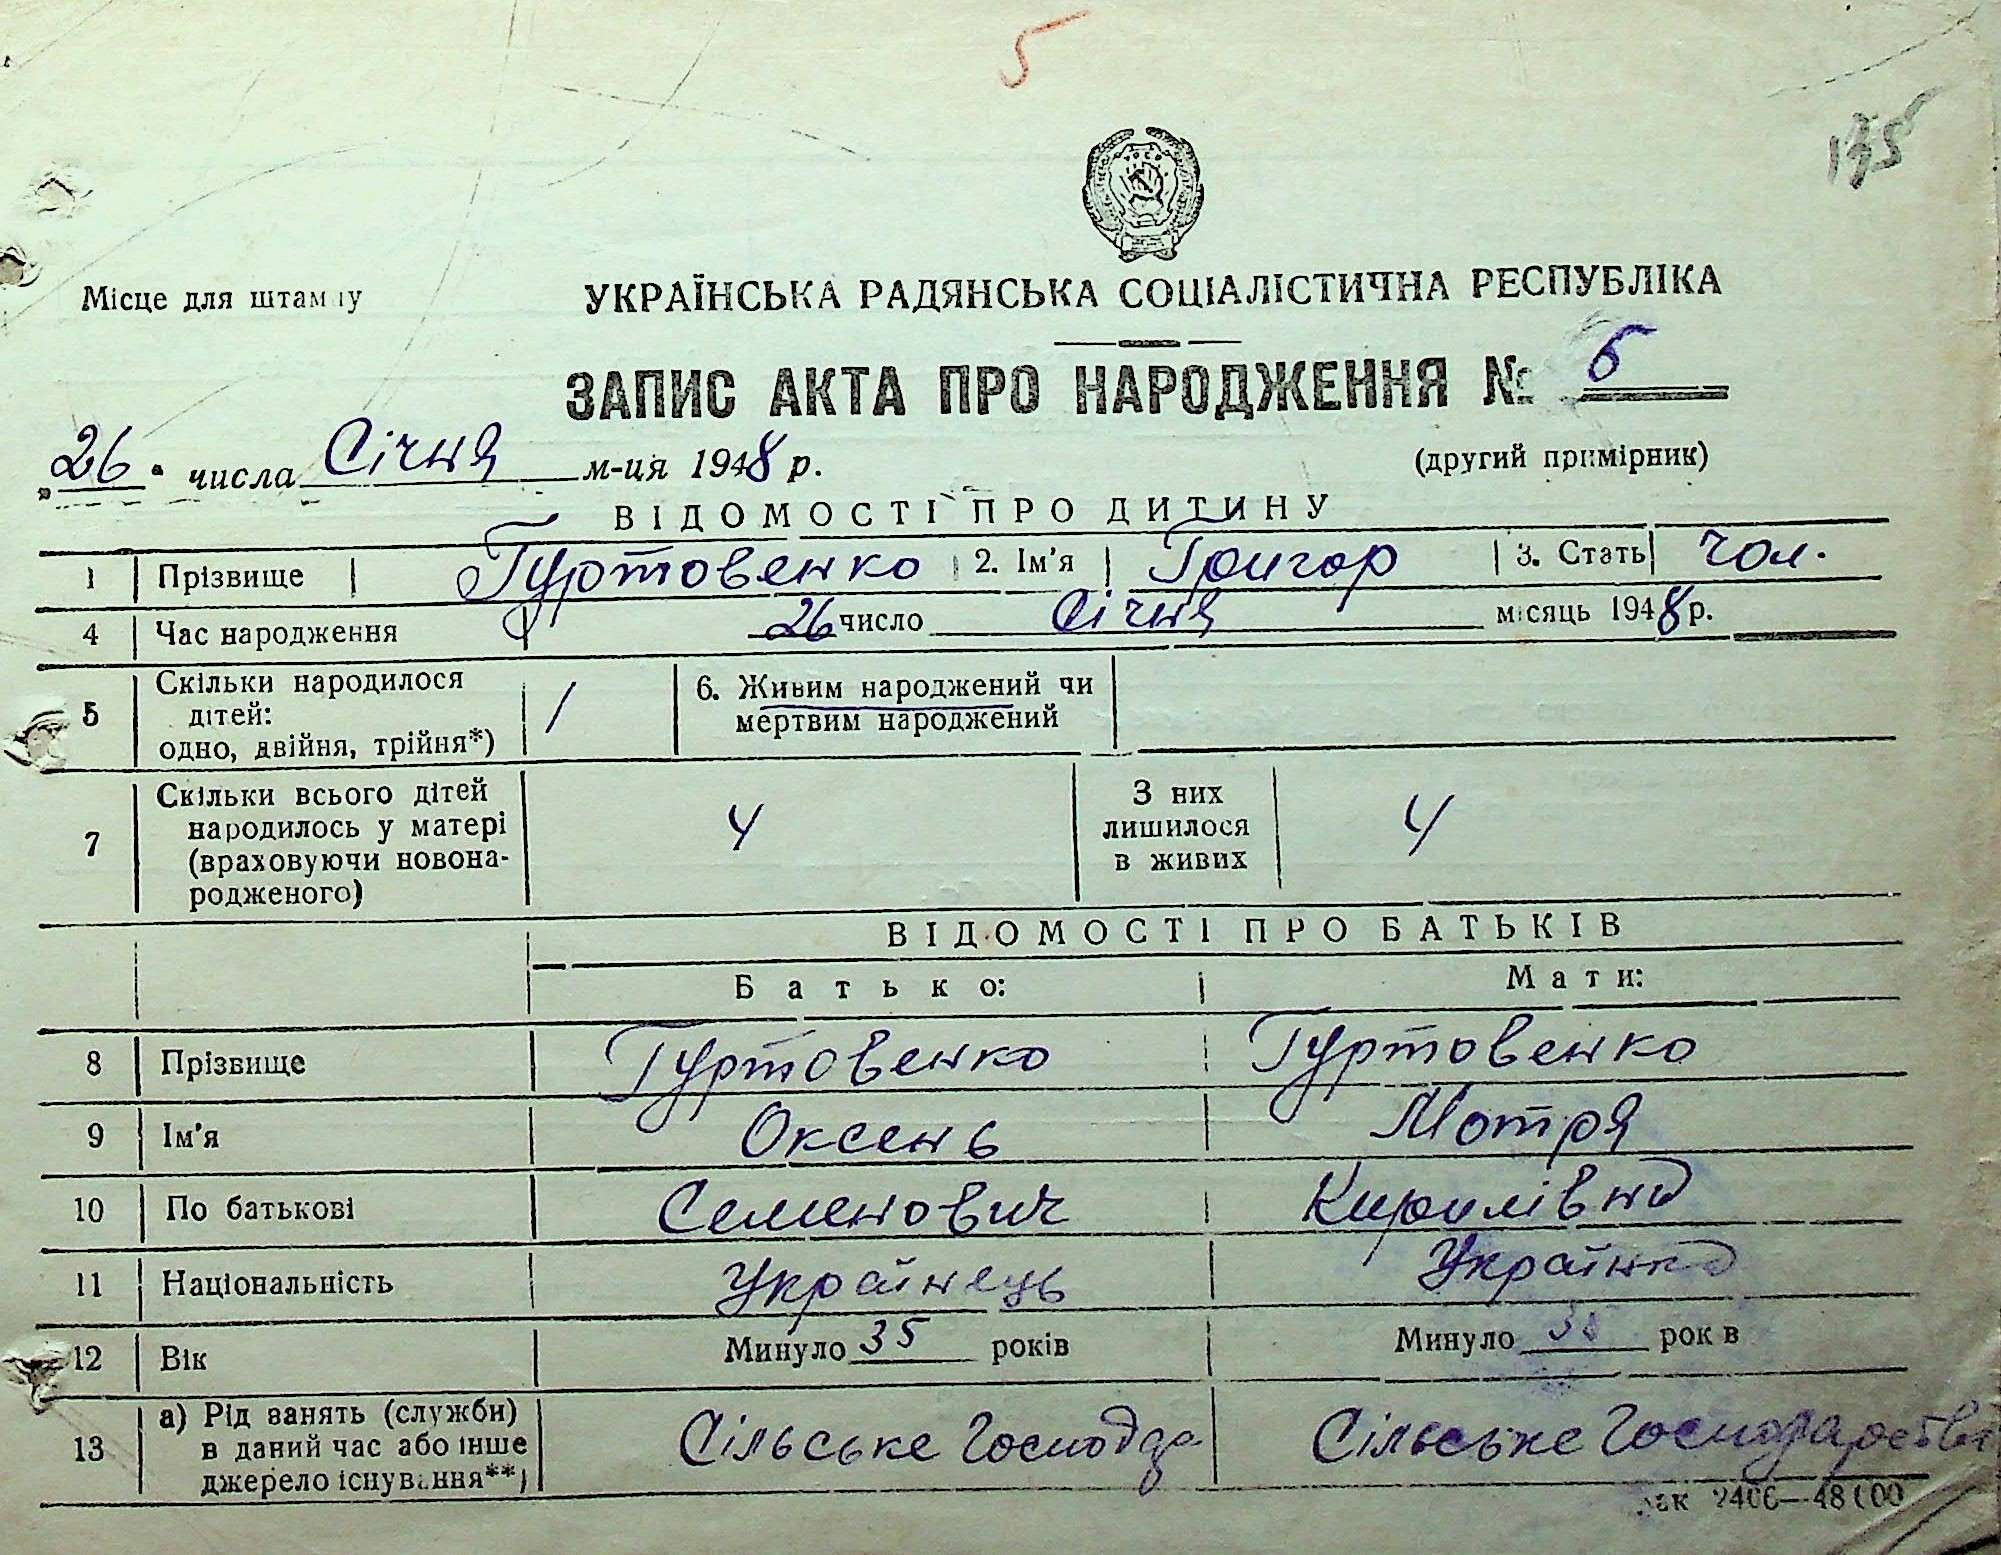 5
135
Місце для штампу
УКРАЇНСЬКА РАДЯНСЬКА СОЦІАЛІСТИЧНА РЕСПУБЛІКА
ЗАПИС АКТА ПРО НАРОДЖЕННЯ № 5
„26“ числа Січня м-ця 1948 р. (другий примірник)
ВІДОМОСТІ ПРО ДИТИНУ
1 Прізвище Гуртовенко 2. Ім'я Григор 3. Стать чол.
4 Час народження 26 число Січня місяць 1948 р.
5 Скільки народилося дітей: одно, двійня, трійня*) 1 6. Живим народжений чи мертвим народжений
7 Скільки всього дітей народилось у матері (враховуючи новона-родженого) 4 З них лишилося в живих 4
ВІДОМОСТІ ПРО БАТЬКІВ
Батько: Мати:
8 Прізвище Гуртовенко Гуртовенко
9 Ім'я Оксень Мотря
10 По батькові Семенович Кирилівна
11 Національність Українець Українка
12 Вік Минуло 35 років Минуло років
13 а) Рід занять (служби) в даний час або інше джерело існування**) Сільське Господа Сільське Господарство
2406—48000